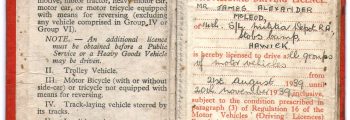 motor tractor, heavy motor car,
motor car, or motor tricycle equipped
with means for reversing (excluding
any vehicle comprised in Group IV or
Group VI).
NOTE. — An additional licence
must be obtained before a Public
Service or a Heavy Goods Vehicle
may be driven.
II. Trolley Vehicle.
III. Motor Bicycle (with or without
side-car) or tricycle not equipped with
means for reversing.
IV. Track-laying vehicle steered by
its tracks.
DRIVING LICENCE
MR JAMES ALEXANDER
McLEOD,
Stobs Camp,
HAWICK
is hereby licensed to drive all groups
of motor vehicles
from 21st August 1939
until 20th November 1939
inclusive, subject to the
condition prescribed in
paragraph (3) of Regulation 16 of
the Motor Vehicles (Driving Licences)